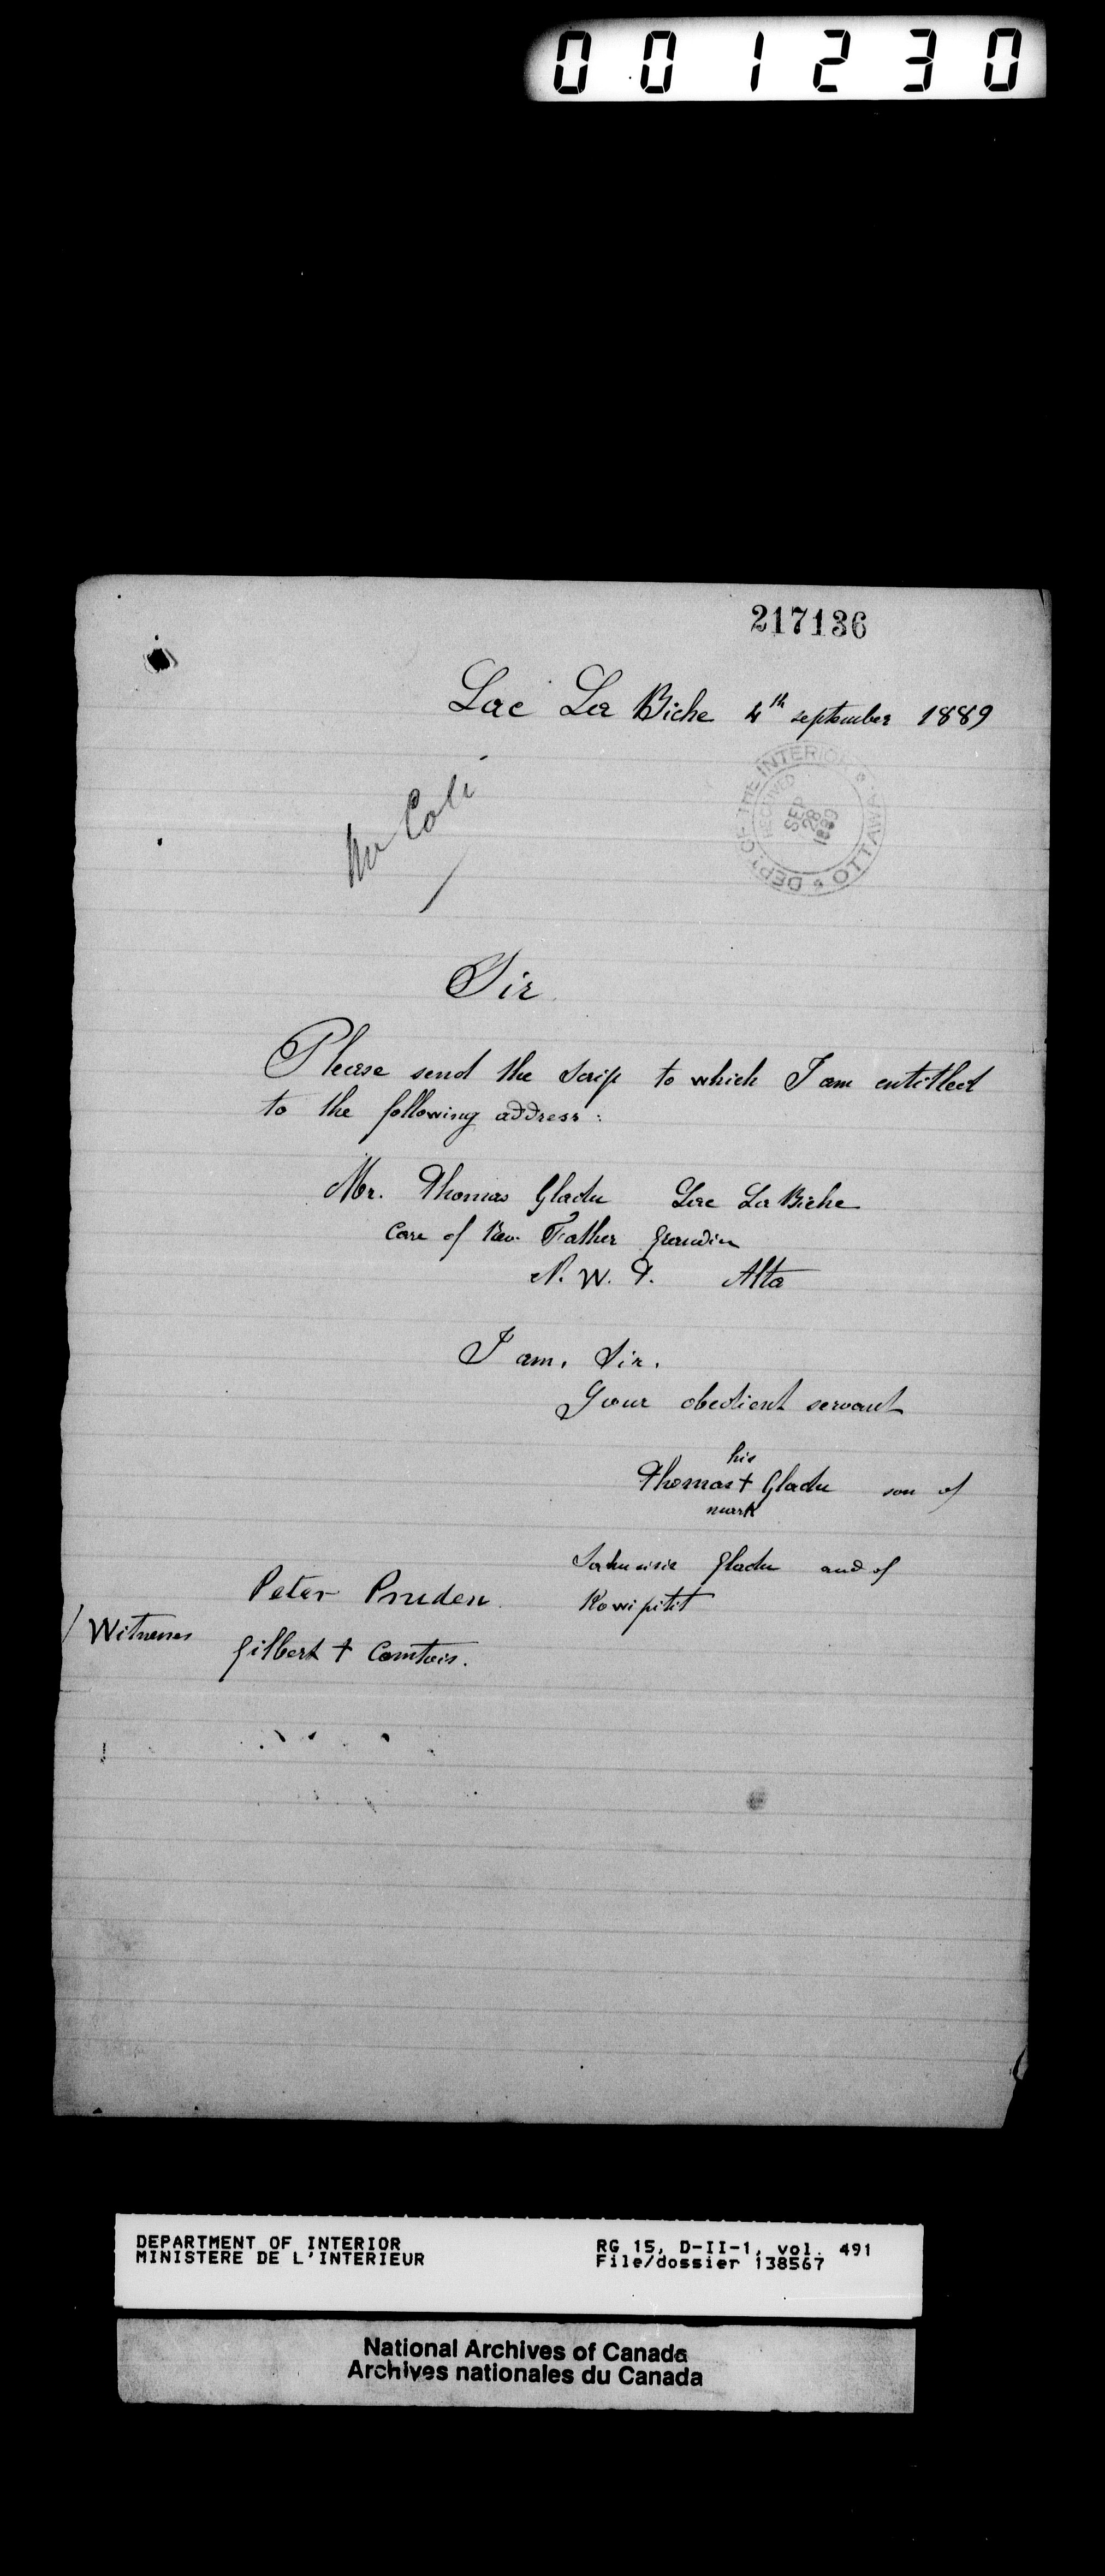 001230
217136
Lac La Biche 4th september 1889
DEPT. OF THE INTERIOR OTTAWA
RECEIVED
SEP
28
1889
Sir
Please send the scrip to which I am entitled
to the following address:
Mr. Thomas Gladu Lac La Biche
Care of Rev. Father Grandin
N. W. T. Alta
I am, Sir,
Your obedient servant
his
Thomas + Gladu son of
mark
Gladu and of
Kowipitit
Peter Pruden
Witnesses
Gilbert + Comtois.
DEPARTMENT OF INTERIOR
MINISTERE DE L'INTERIEUR
RG 15, D-II-1, vol. 491
File/dossier 138567
National Archives of Canada
Archives nationales du Canada